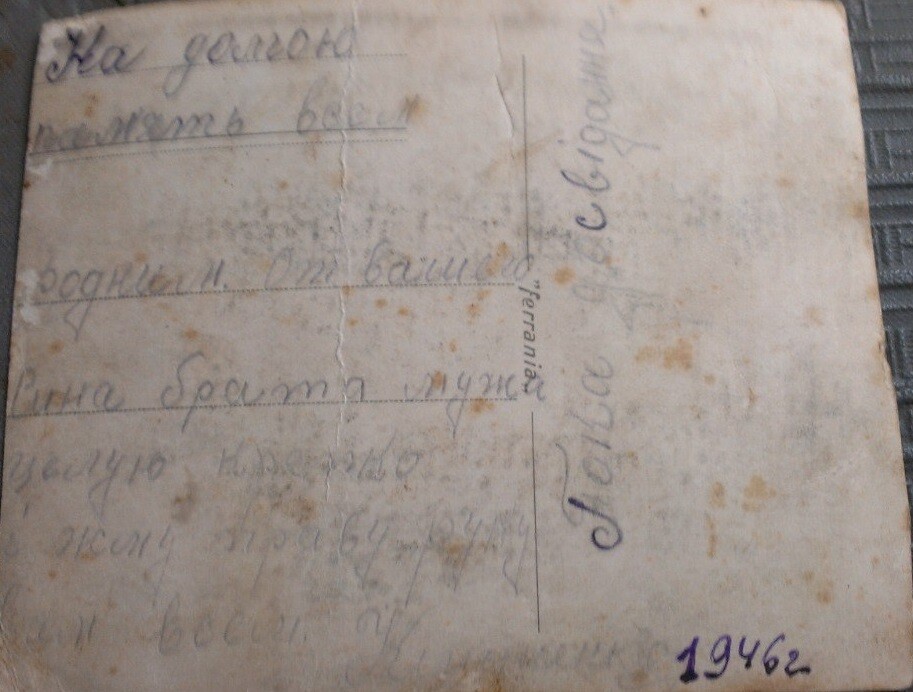 На долгою
память всем
родным. От вашего
Сина брата мужа
целую крепко
жму праву руку
всем
"ferrania"
Пока до свідание
1946г